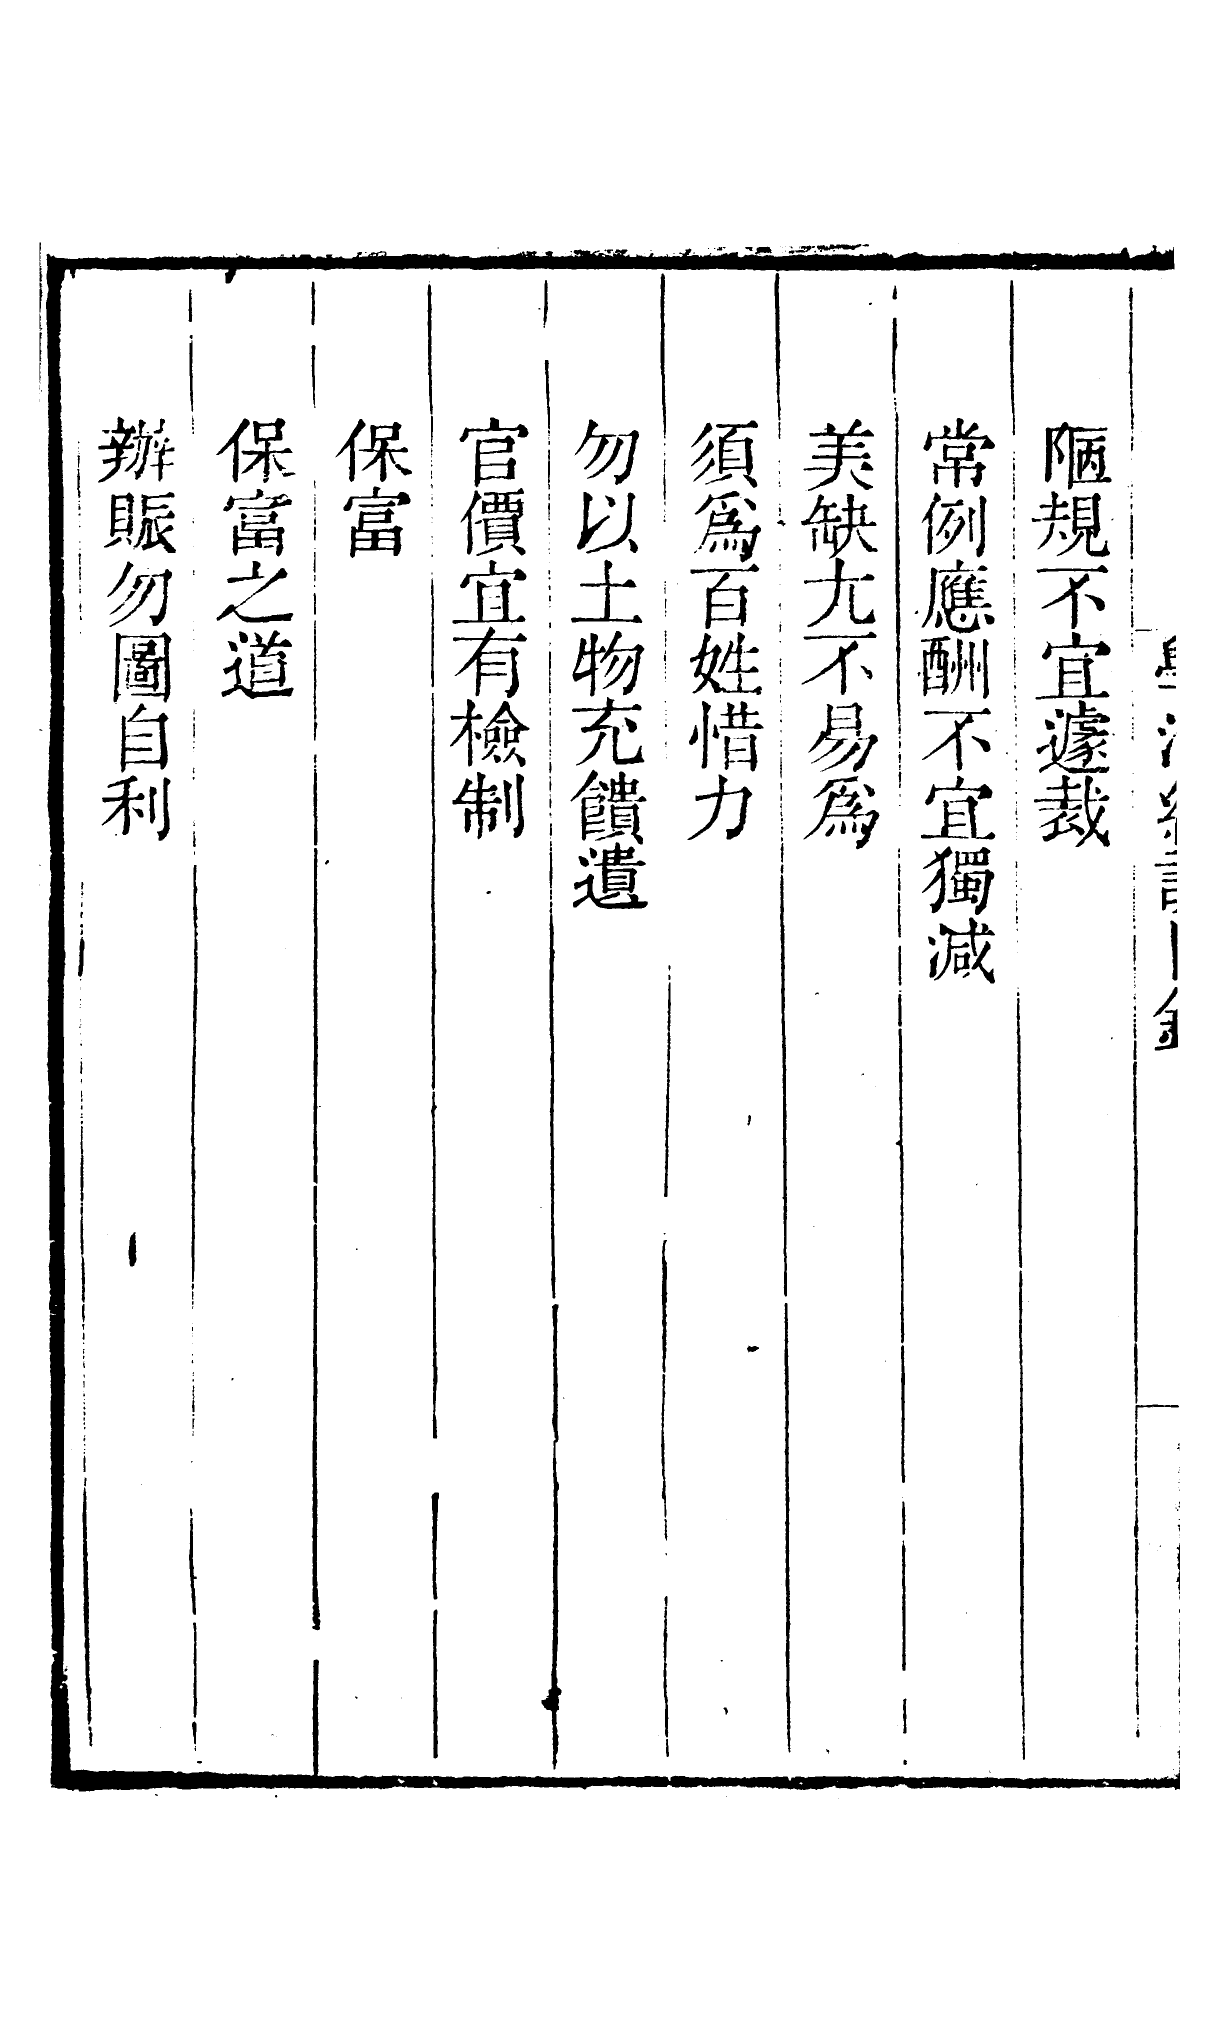 陋規不宜遽裁
常例應酬不宜獨減
美缺尢不易爲
須爲百姓惜力
勿以土物充饋遺
官價宜有檢制
保富
保富之道
辦賑勿圖自利